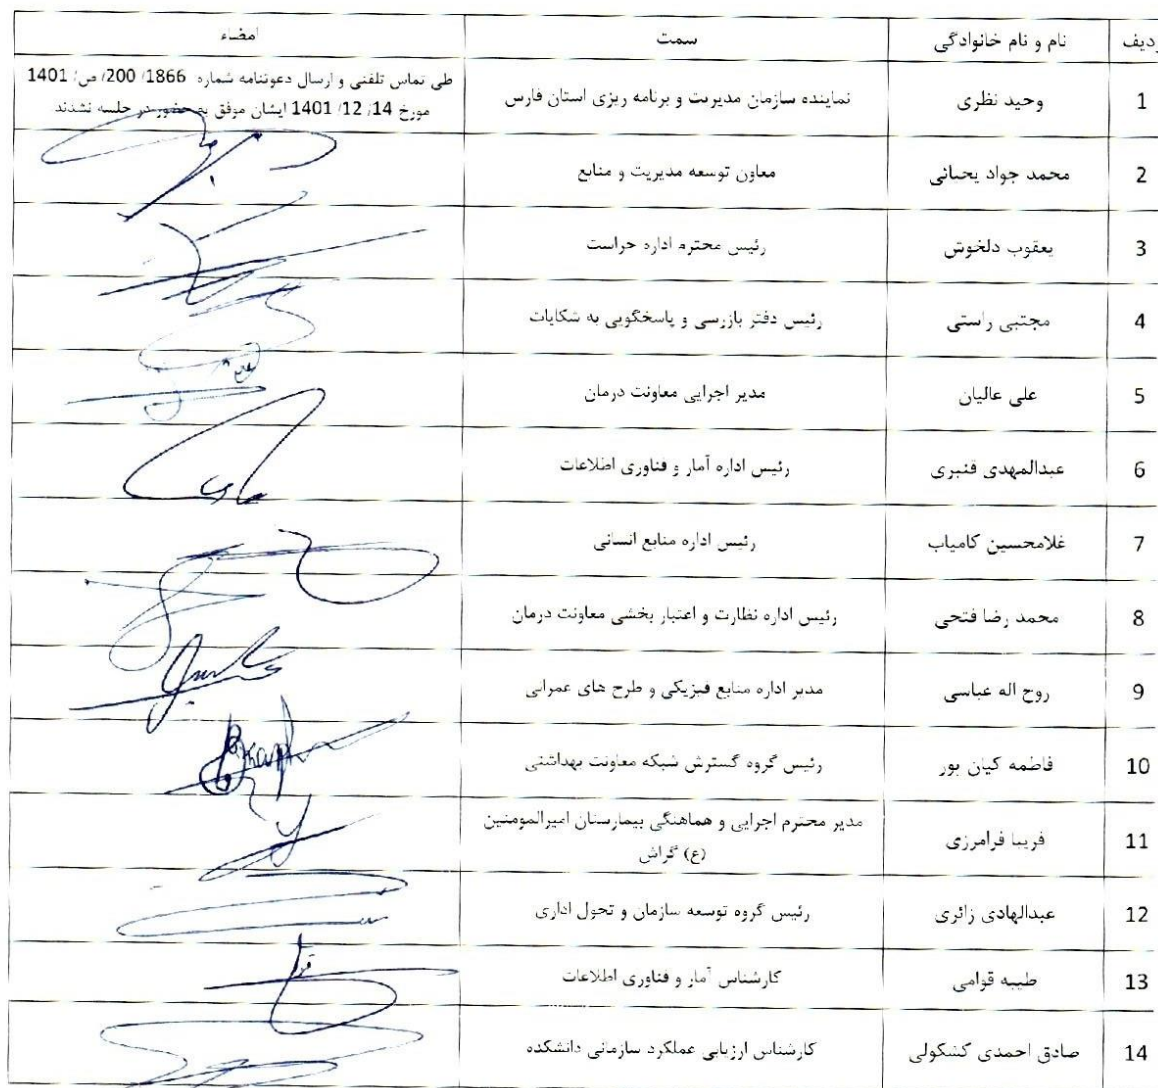 ردیف نام و نام خانوادگی سمت امضاء
1 وحید نظری نماینده سازمان مدیریت و برنامه ریزی استان فارس طی تماس تلفنی و ارسال دعوتنامه شماره 1866/ 200/ ص/ 1401
مورخ 14/ 12/ 1401 ایشان موفق به حضور در جلسه نشدند
2 محمد جواد یحیائی معاون توسعه مدیریت و منابع
3 یعقوب دلخوش رئیس محترم اداره حراست
4 مجتبی راستی رئیس دفتر بازرسی و پاسخگویی به شکایات
5 علی عالیان مدیر اجرایی معاونت درمان
6 عبدالمهدی قنبری رئیس اداره آمار و فناوری اطلاعات
7 غلامحسین کامیاب رئیس اداره منابع انسانی
8 محمد رضا فتحی رئیس اداره نظارت و اعتبار بخشی معاونت درمان
9 روح اله عباسی مدیر اداره منابع فیزیکی و طرح های عمرانی
10 فاطمه کیان پور رئیس گروه گسترش شبکه معاونت بهداشتی
11 فریبا فرامرزی مدیر محترم اجرایی و هماهنگی بیمارستان امیرالمومنین
(ع) گراش
12 عبدالهادی زائری رئیس گروه توسعه سازمان و تحول اداری
13 طیبه قوامی کارشناس آمار و فناوری اطلاعات
14 صادق احمدی کشکولی کارشناس ارزیابی عملکرد سازمانی دانشکده